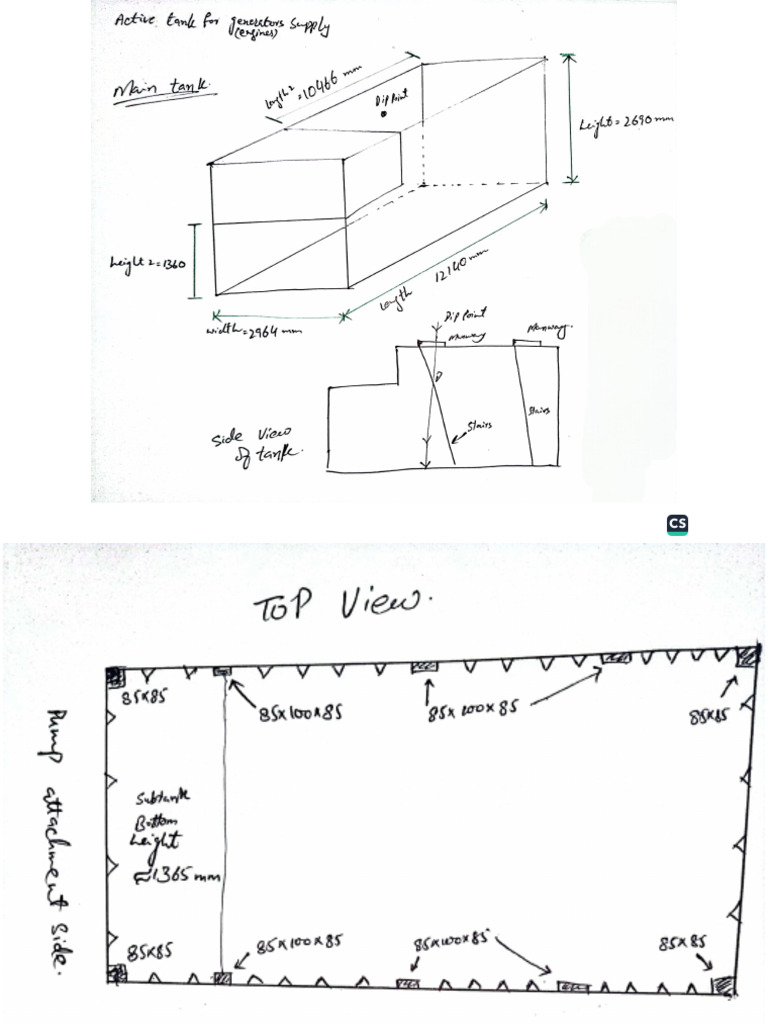 Active tank for generators supply
(engines)
Main tank.
length 2 = 10466 mm
Dip Point
height = 2690 mm
height 2 = 1360
length 12140 mm
width = 2964 mm
Dip Point
Manway
Manway.
Side View
of tank.
Stairs
Stairs
CS
TOP View.
85x85
85x100x85
85x100x85
85x85
Pump attachment side.
Subtank
Bottom
height
≈1365 mm
85x85
85x100x85
85x100x85
85x85